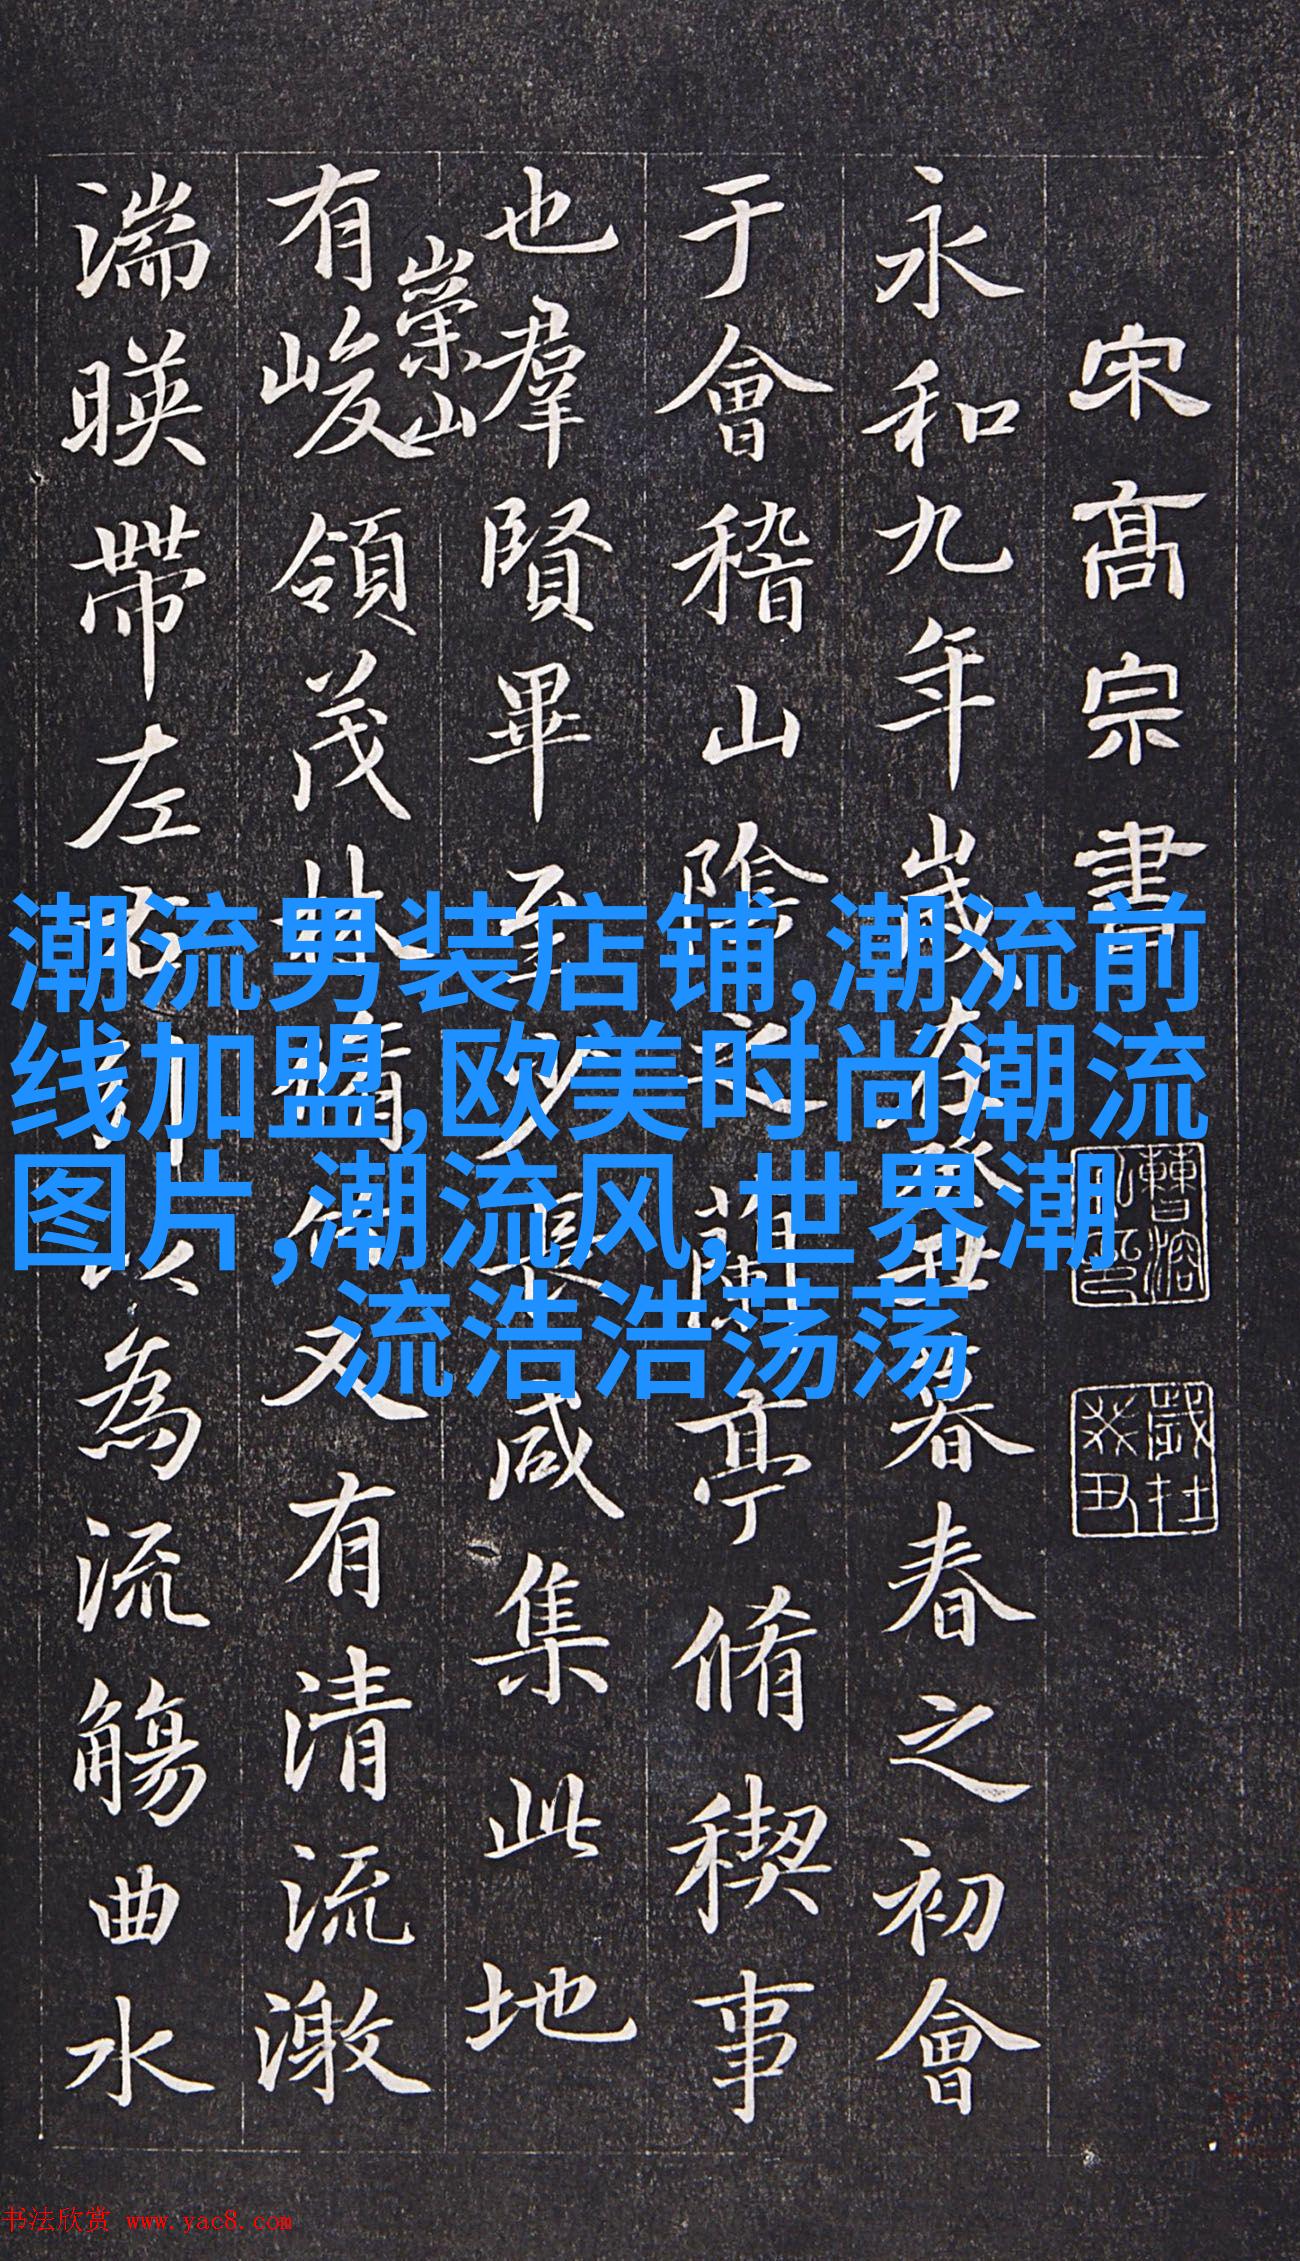 宋高宗書
永和九年歲在癸丑暮春之初會
于會稽山陰之蘭亭脩稧事
也羣賢畢至少長咸集此地
有崇山峻領茂林脩竹又有清流激
湍暎帶左右引以為流觴曲水
歲在癸丑
潮流男装店铺,潮流前
线加盟,欧美时尚潮流
图片,潮流风,世界潮
流浩浩荡荡
书法欣赏 www.yac8.com